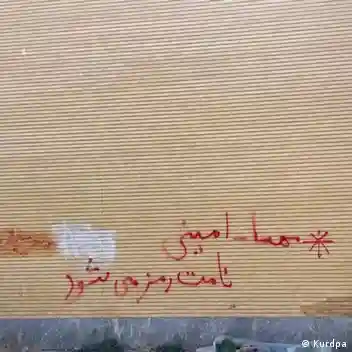 مهسا_امینی
نامت رمز می شود
@ Kurdpa